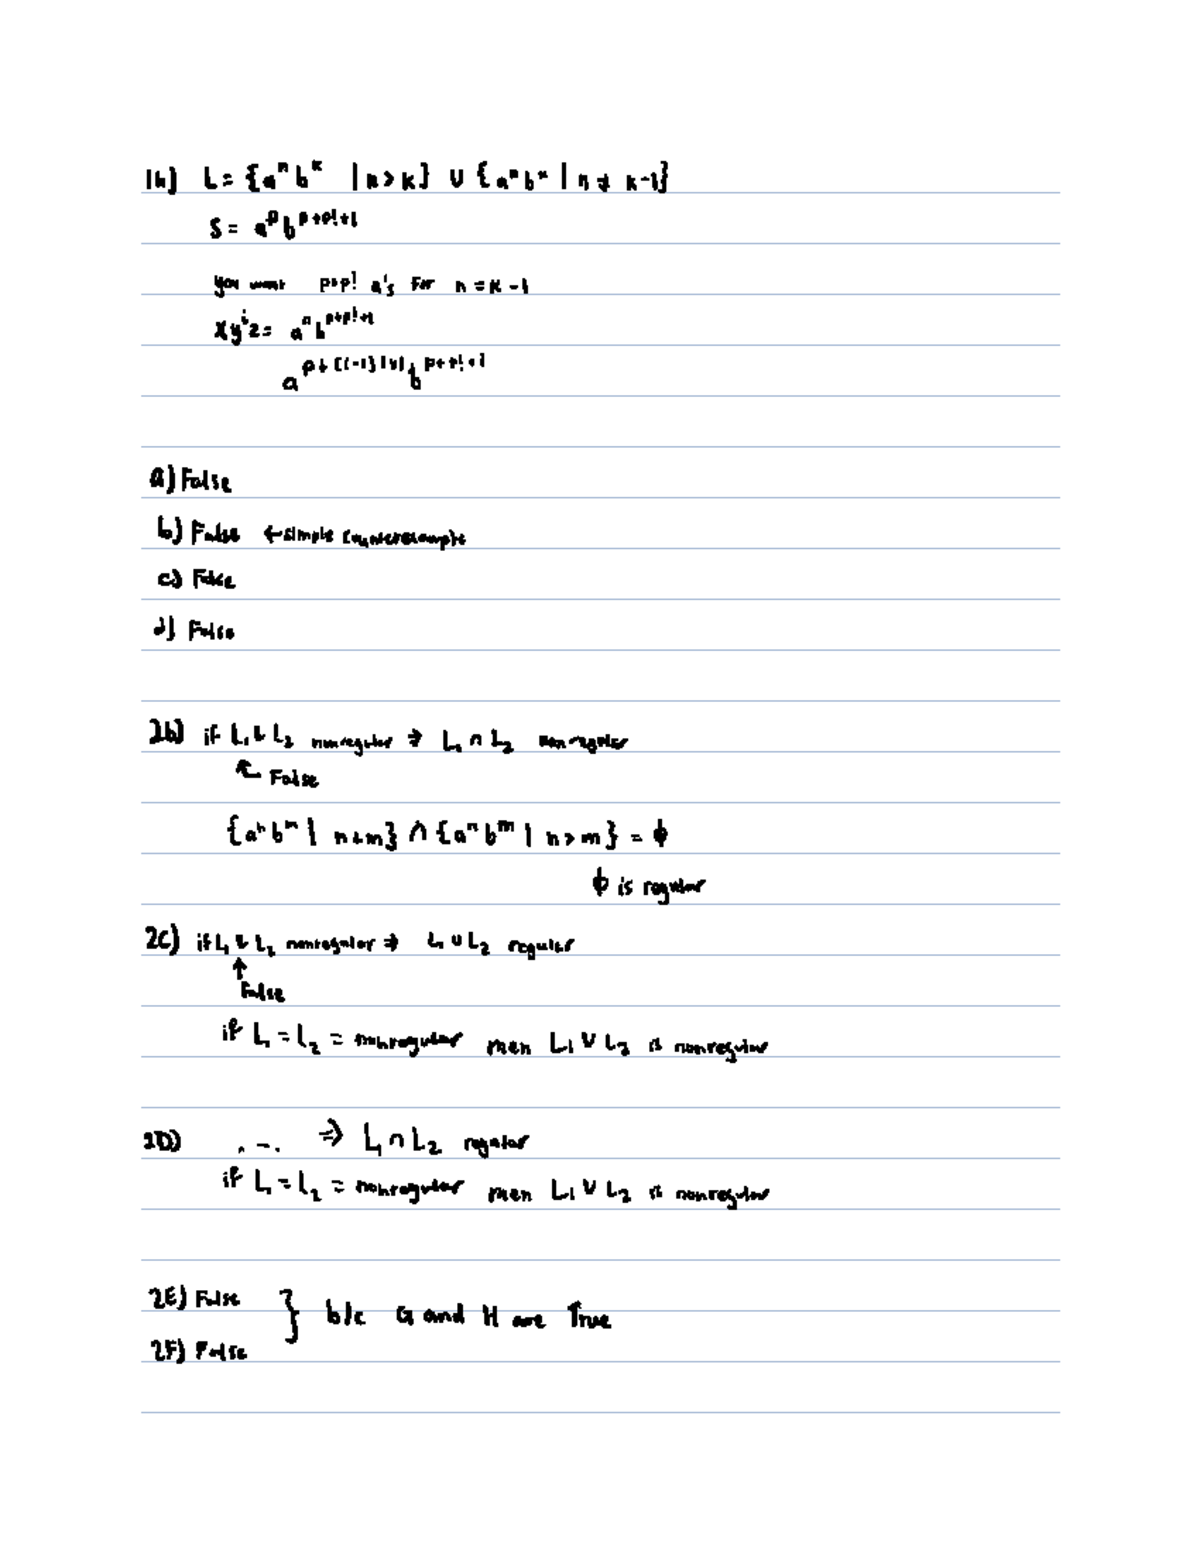 1h) L = {aⁿbᵏ | n > k} ∪ {aⁿbᵏ | n ≠ k-1}
S = a^p b^(p+p!+1)
you want p+p! a's for n = k-1
xyⁱz = aⁿb^(p+p!+1)
a^(p+(i-1)|y|) b^(p+p!+1)
a) False
b) False ← simple counterexample
c) False
d) False
2b) if L₁ & L₂ nonregular ⇒ L₁ ∩ L₂ nonregular
False
{aⁿbᵐ | n<m} ∩ {aⁿbᵐ | n>m} = ϕ
ϕ is regular
2C) if L₁ & L₂ nonregular ⇒ L₁ ∪ L₂ regular
↑
False
if L₁ = L₂ = nonregular then L₁ ∪ L₂ is nonregular
2D) . -. ⇒ L₁ ∩ L₂ regular
if L₁ = L₂ = nonregular then L₁ ∪ L₂ is nonregular
2E) False } b/c G and H are True
2F) False